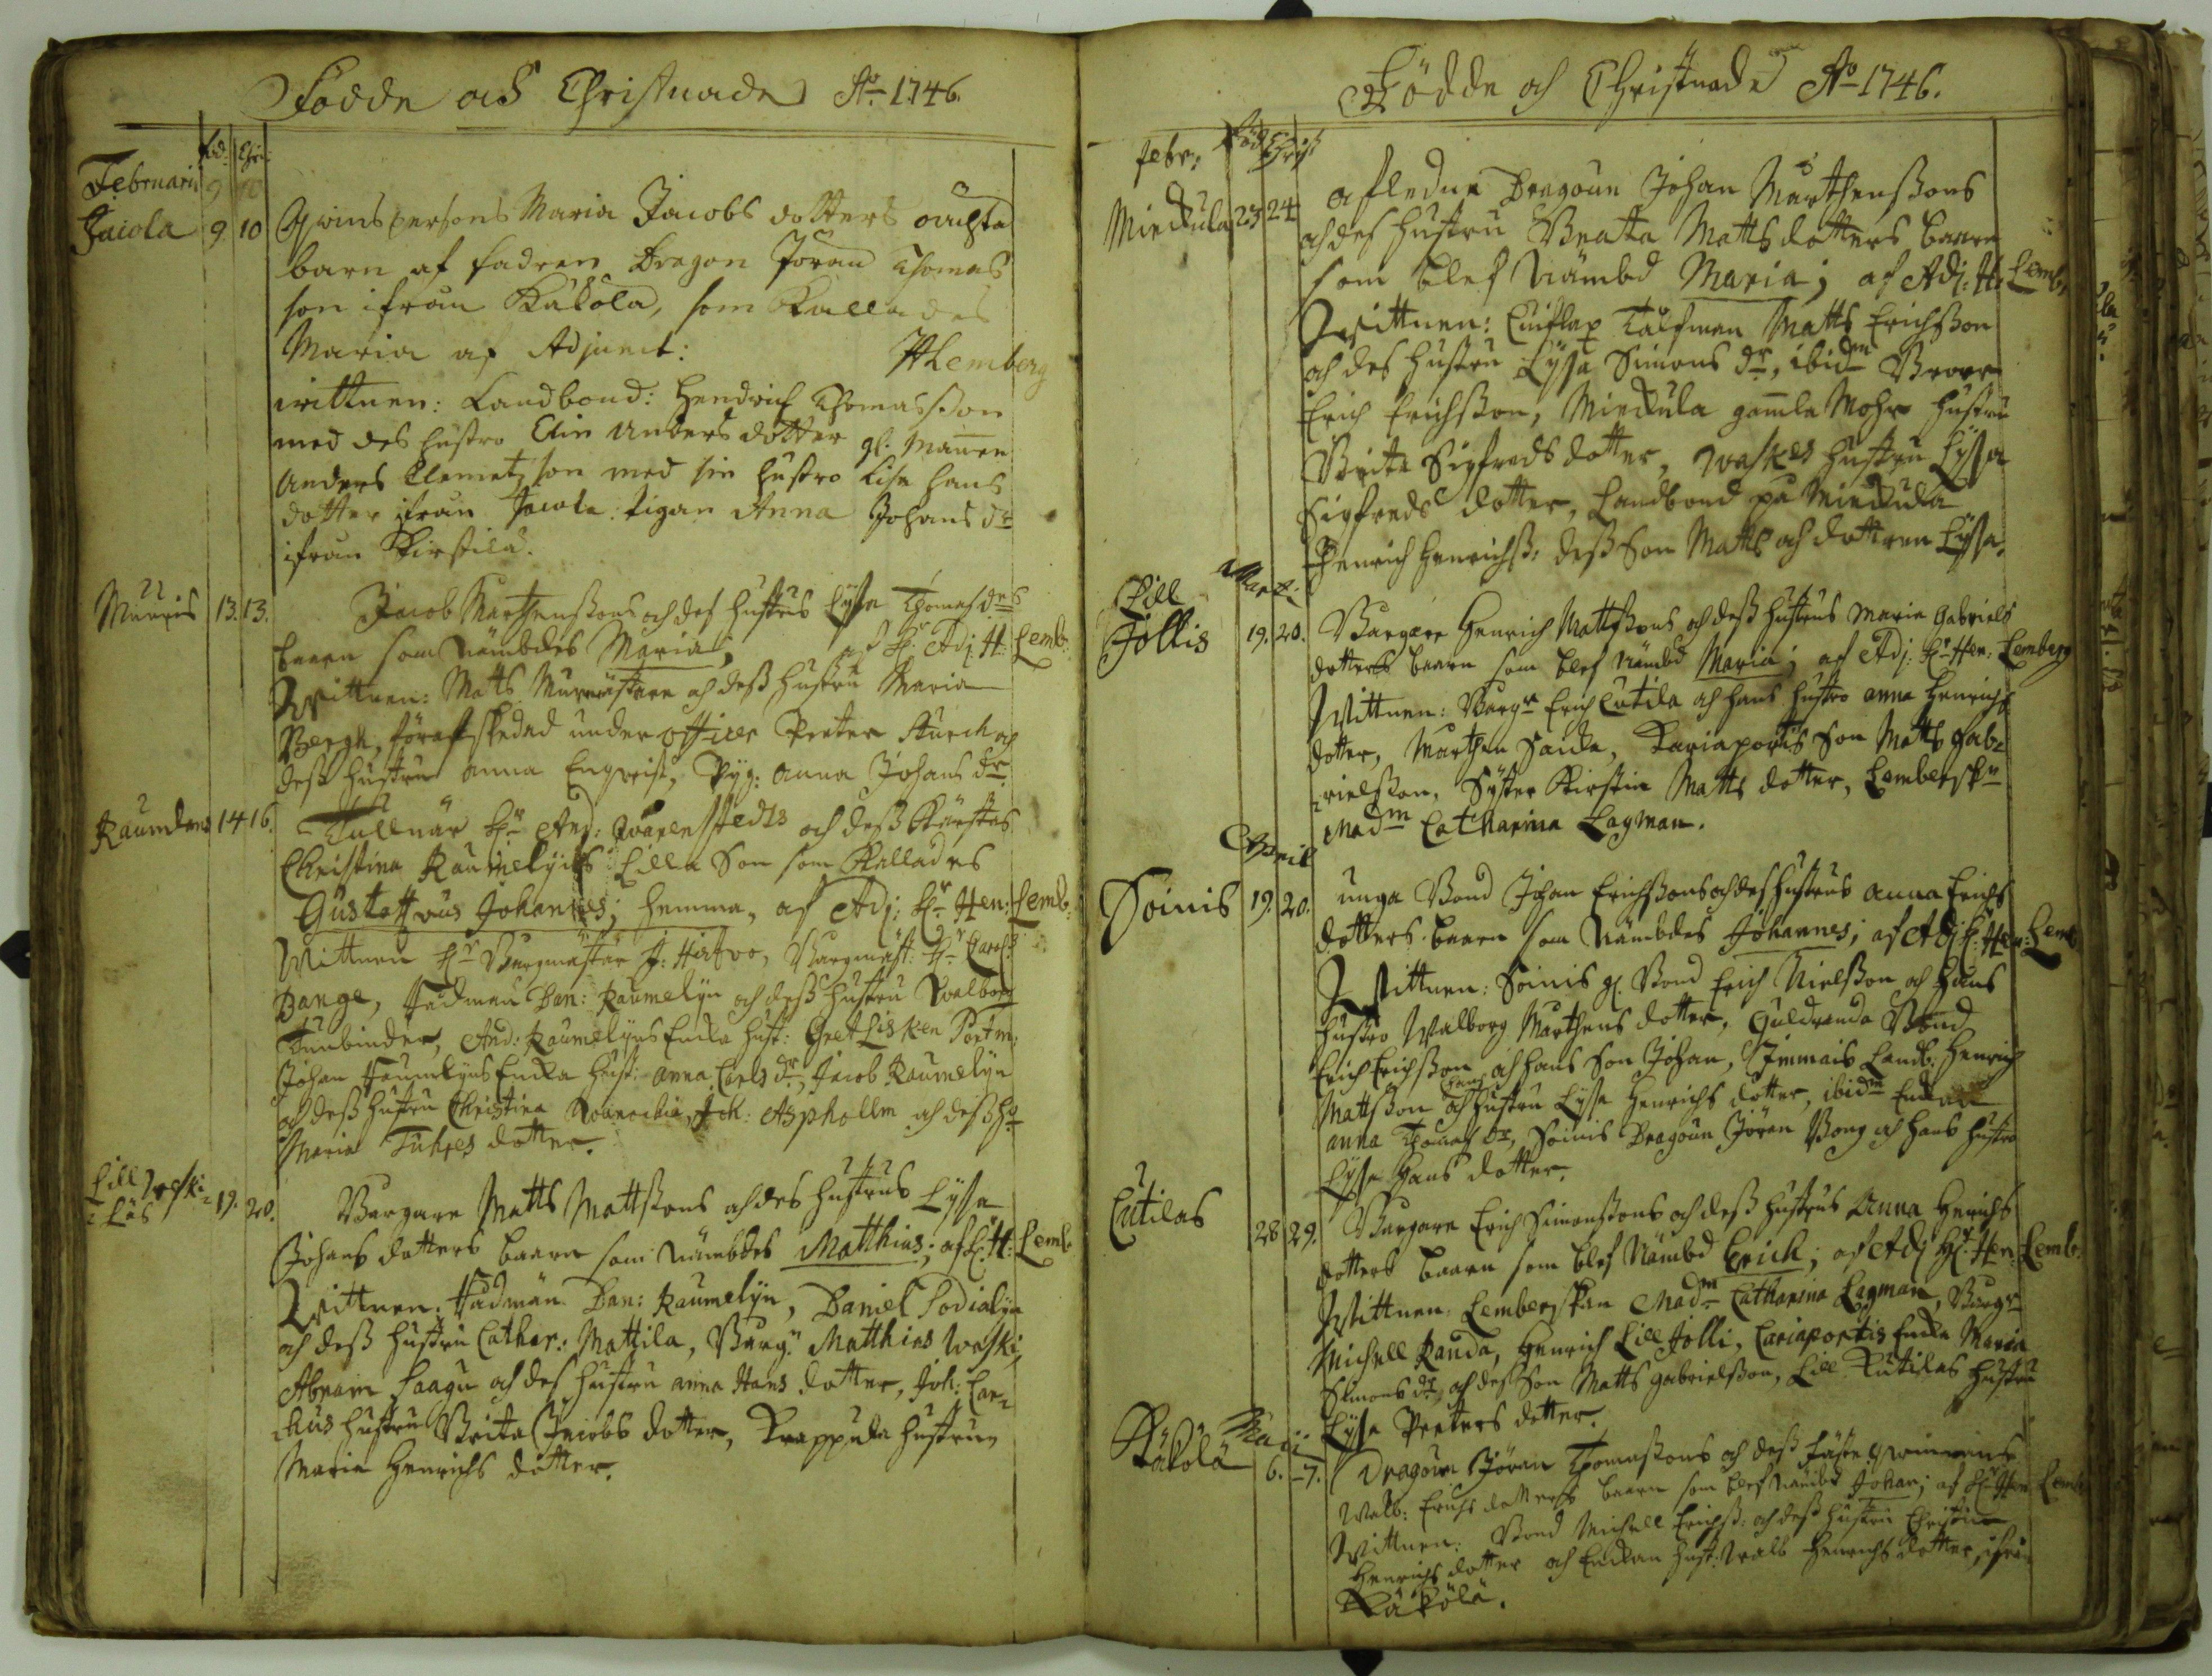 Födde och Christnade Ao 1746.
Föd. Chri:
Februarii 9 10
Jaiola 9 10 Qvinspersons Maria Jacobs dotters oächta
barn af fadren Dragon Jöran Thomas
son ifrån Käkölä, som kallades
Maria af Adjunct: H Lemberg
wittnen: Landbond: Hendrich Thomasson
med des hustro Elin Anders dotter gl. Mannen
Anders Clemetz son med sin hustro Lisa Hans
dotter ifrån Jaiola. Pigan Anna Johans dr
ifrån Kirstilä.
Mauris 13. 13. Jacob Marthenssons och des hustrus Lyssa Thomas drs
baarn som nämbdes Maria, af Hr Adj. H: Lemb:
Wittnen: Matts Murmästare och dess hustru Maria
Bergh, föraffskedad under officer Peeter Sturch och
dess hustru Anna Enqvist, Pyg: Anna Johans dr
Raumlens 14 16. Tullnär Hr And: Qvarenstedts och dess kärestas
Christina Raumelyns lilla Son som kallades
Gustaffvus Johannes; hemma, af Adj: Hr Hen: Lemb:
Wittnen Hr Burgmästar J: Hirfvo, Burgmäst: Hr Carl
Bange, Rådman Dan: Raumelyn och dess hustru Walborg
Tunbinder, And: Raumelyns Enka hust: Gret Lisken Portm:
Johan Raumlyns Enka hust: Anna Carls dr, Jacob Raumelyn
och dess hustru Christina, Joh: Aspholm och dess hu
Maria Tuhres dotter.
Lill Waski
Läs 19. 20. Burgare Matts Mattssons och des hustrus Lyssa
Johans dotters baarn som nämbdes Matthias; af H: Lemb
Wittnen: Rådman Dan: Raumelyn, Daniel Sodialyn
och dess hustru Cathar: Mattila, Burgr Matthias Waski,
Abram Saagu och des hustru Anna Hans dotter, Joh: Car
kus hustru Brita Jacobs dotter, Krappula hustrun
Maria Henrichs dotter.
Födde och Christnade Ao 1746.
Febr: Föd Christ
Mieckula 23 24 afledne Dragoun Johan Marthenssons
och des hustru Beata Matts dotters baarn
som blef nämbd Maria; af Adj: H: Lemb.
Wittnen: Tålfman Matts Erichsson
och des hustru Lyssa Simons dr, ibidm Broor
Erich Erichsson, Mieckula gamla Mohr hustru
Brita Sigfreds dotter, Waskes hustru Lyssa
Sigfreds dotter, Landbond på Mieckula
Henrich Henrichss: dess Son Matts och dottren Lyssa.
Mart:
Lill
Jollis 19. 20. Burgare Henrich Mattssons och dess hustrus Maria Gabriels
dotters baarn som blef nämbd Maria; af Adj: Hr Hen: Lemberg
Wittnen: Burgr Erich Cutila och hans hustro Anna Henrichs
dotter, Marthen Saicka, Kariaportis Son Matts Gab
rielsson, Syster Kirstin Matts dotter, Lemberskn
Madm Catharina Lagman.
April
Soinis 19. 20. unga Bond Johan Erichssons och des hustrus Anna Erichs
dotters baarn som nämbdes Johannes; af Adj H: Hen: Lemb
Wittnen: Soinis gl. Bond Erich Nielsson och hans
hustro Walborg Marthens dotter, Guldranda Bond
Erich Erichsson och hans Son Johan, Immais Landb: Henrich
Mattsson och hans hustru Lyssa Henrichs dotter, ibidm Enkan
Anna Thomas dr, Soinis Dragoun Jöran Bong och hans hustro
Lyssa Hans dotter.
Cutilas 28 29. Burgare Erich Simonssons och dess hustrus Anna Henrichs
dotters baarn som blef nämbd Erich; af Adj Hr Hen: Lemb:
Wittnen Lemberskan Madm Catharina Lagman, Burgr
Michell Randa, Henrich Lill Jolli, Cariaportis Enka Maria
Simons dr och des Son Matts Gabrielsson, Lill Kutilas hustru
Lyssa Peeters dotter.
Maii
Käkölä 6. 7. Dragoun Jöran Thomassons och dess fäste qwinnans
Walb: Erichs dotters baarn som blef nämbd Johan; af Hr Hen Lemb
Wittnen: Bond Michell Erichss: och dess hustru Christin
Henrichs dotter och Enkan hust: Walb Henrichs dotter, ifrån
Käkölä.